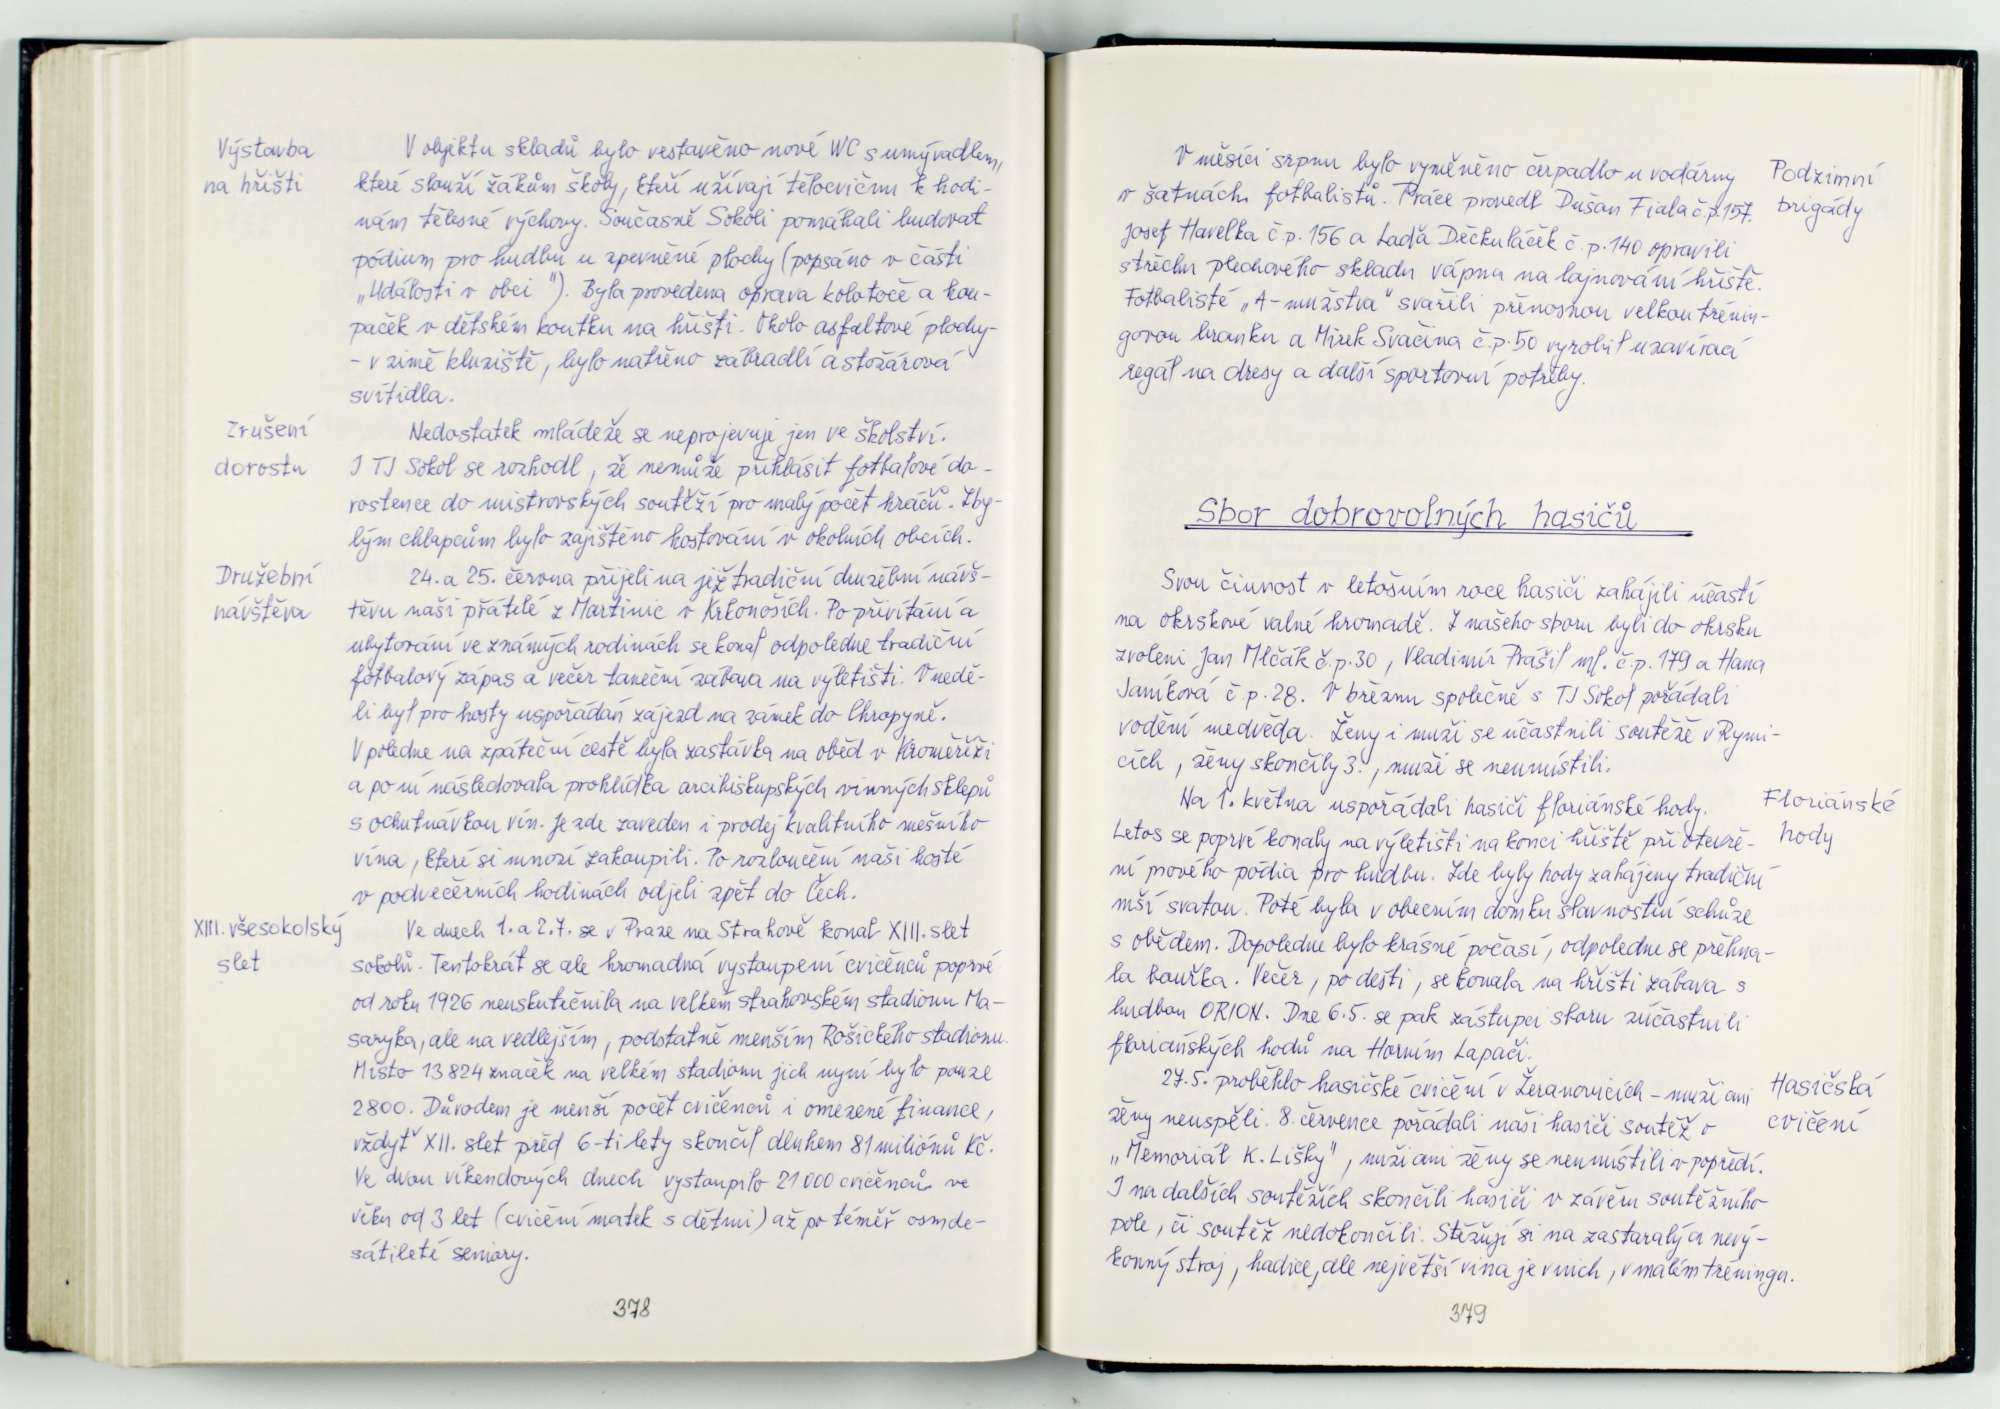 Výstavba
na hřišti
V objektu skladů bylo vestavěno nové WC s umývadlem,
které slouží žákům školy, kteří užívají tělocvičnu k hodi-
nám tělesné výchovy. Současně Sokoli pomáhali budovat
pódium pro hudbu u zpevněné plochy (popsáno v části
„Události v obci“). Byla provedena oprava kolotoče a hou-
paček v dětském koutku na hřišti. Okolo asfaltové plochy-
- v zimě kluziště, bylo natřeno zábradlí a stožárová
svítidla.
Zrušení
dorostu
Nedostatek mládeže se neprojevuje jen ve školství.
I TJ Sokol se rozhodl, že nemůže přihlásit fotbalové do-
rostence do mistrovských soutěží pro malý počet hráčů. Zby-
lým chlapcům bylo zajištěno hostování v okolních obcích.
Družební
návštěva
24. a 25. června přijeli na již tradiční družební návš-
těvu naši přátelé z Martinic v Krkonoších. Po přivítání a
ubytování ve známých rodinách se konal odpoledne tradiční
fotbalový zápas a večer taneční zábava na výletišti. V nedě-
li byl pro hosty uspořádán zájezd na zámek do Chropyně.
V poledne na zpáteční cestě byla zastávka na oběd v Kroměříži
a po ní následovala prohlídka arcibiskupských vinných sklepů
s ochutnávkou vín. Je zde zaveden i prodej kvalitního mešního
vína, které si mnozí zakoupili. Po rozloučení naši hosté
v podvečerních hodinách odjeli zpět do Čech.
XIII. všesokolský
slet
Ve dnech 1. a 2.7. se v Praze na Strahově konal XIII. slet
sokolů. Tentokrát se ale hromadná vystoupení cvičenců poprvé
od roku 1926 neuskutečnila na velkém strahovském stadionu Ma-
saryka, ale na vedlejším, podstatně menším Rošického stadionu.
Místo 13824 značek na velkém stadionu jich nyní bylo pouze
2800. Důvodem je menší počet cvičenců i omezené finance,
vždyť XII. slet před 6-ti lety skončil dluhem 81 miliónů Kč.
Ve dvou víkendových dnech vystoupilo 21000 cvičenců ve
věku od 3 let (cvičení matek s dětmi) až po téměř osmde-
sátileté seniory.
378
V měsíci srpnu bylo vyměněno čerpadlo u vodárny
v šatnách fotbalistů. Práce provedl Dušan Fiala č.p.157.
Josef Havelka č.p. 156 a Laďa Děckuláček č.p. 140 opravili
střechu plechového skladu vápna na lajnování hřiště.
Fotbalisté „A-mužstva“ svařili přenosnou velkou trénin-
govou branku a Mirek Svačina č.p. 50 vyrobil uzavírací
regál na dresy a další sportovní potřeby.
Podzimní
brigády
Sbor dobrovolných hasičů
Svou činnost v letošním roce hasiči zahájili účastí
na okrskové valné hromadě. Z našeho sboru byli do okrsku
zvoleni Jan Mlčák č.p. 30, Vladimír Prášil ml. č.p. 179 a Hana
Janíková č.p. 28. V březnu společně s TJ Sokol pořádali
vodění medvěda. Ženy i muži se účastnili soutěže v Rymi-
cích, ženy skončily 3., muži se neumístili.
Na 1. května uspořádali hasiči floriánské hody.
Letos se poprvé konaly na výletišti na konci hřiště při otevře-
ní nového pódia pro hudbu. Zde byly hody zahájeny tradiční
mší svatou. Poté byla v obecním domku slavnostní schůze
s obědem. Dopoledne bylo krásné počasí, odpoledne se přehna-
la bouřka. Večer, po dešti, se konala na hřišti zábava s
hudbou ORION. Dne 6.5. se pak zástupci sboru zúčastnili
floriánských hodů na Horním Lapači.
Floriánské
hody
27.5. proběhlo hasičské cvičení v Žeranovicích - muži ani
ženy neuspěli. 8. července pořádali naši hasiči soutěž o
„Memoriál K. Lišky“, muži ani ženy se neumístili v popředí.
I na dalších soutěžích skončili hasiči v závěru soutěžního
pole, či soutěž nedokončili. Stěžují si na zastaralý a nevý-
konný stroj, hadice, ale největší vina je v nich, v malém tréningu.
Hasičská
cvičení
379